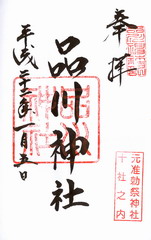 奉拝
品川神社
平成二十三年一月五日
元准勅祭神社
十社之内